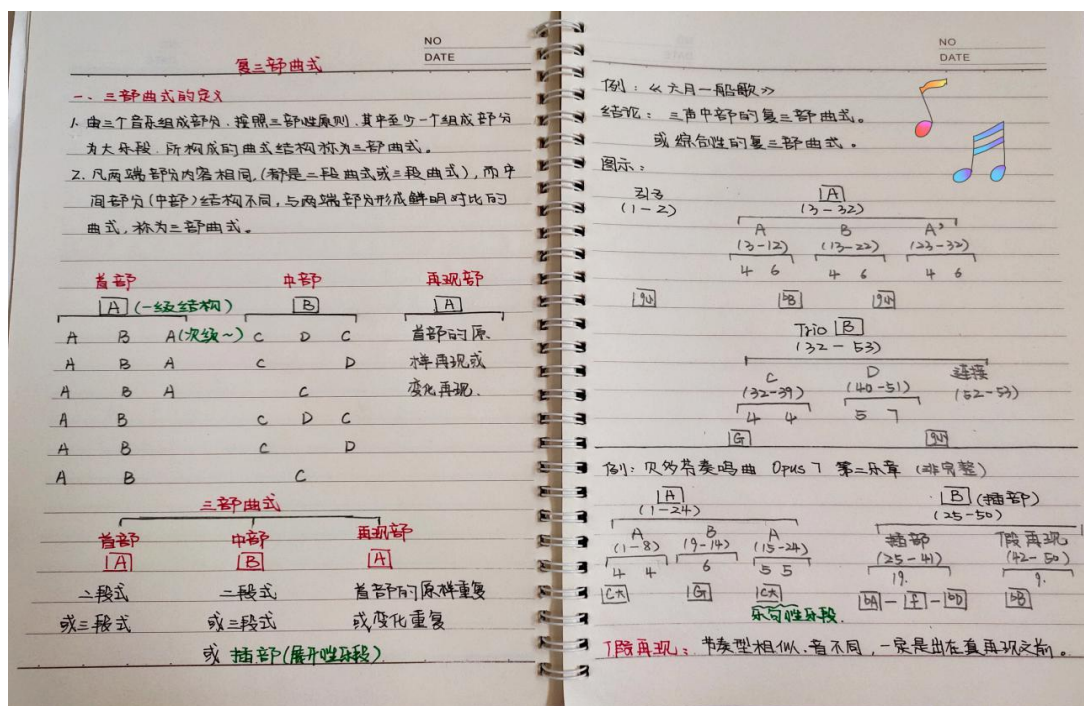 NO
DATE
复三部曲式
一、三部曲式的定义
1. 由三个音乐组成部分、按照三部性原则、其中至少一个组成部分
为大乐段、所构成的曲式结构称为三部曲式。
2. 凡两端部分内容相同,(都是二段曲式或三段曲式),而中
间部分(中部)结构不同,与两端部分形成鲜明对比的
曲式,称为三部曲式。
首部 中部 再现部
A (一级结构) B A
A B A(次级~) C D C 首部的原
A B A C D 样再现或
A B A C 变化再现.
A B C D C
A B C D
A B C
三部曲式
首部 中部 再现部
A B A
二段式 二段式 首部的原样重复
或三段式 或三段式 或变化重复
或 插部(展开性乐段)
NO
DATE
例:《六月—船歌》
结论:三声中部的复三部曲式。
或综合性的复三部曲式。
图示:
引子 A
(1-2) (3-32)
A B A'
(3-12) (13-22) (23-32)
4 6 4 6 4 6
bB
Trio B
(32-53)
C D 连接
(32-39) (40-51) (52-53)
4 4 5 7
G
例:贝多芬奏鸣曲 Opus 7 第二乐章 (非完整)
A B (插部)
(1-24) (25-50)
A B A 插部 假再现
(1-8) (9-14) (15-24) (25-41) (42-50)
4 4 6 5 5 19. 9.
C大 G C大 bA - f - bD bB
乐句性乐段.
假再现:节奏型相似、音不同,一定是出在真再现之前。